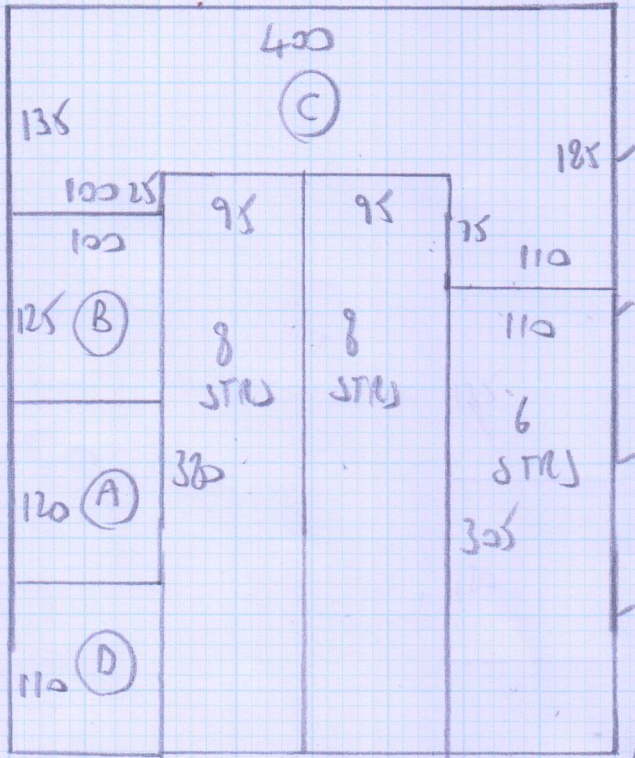 400
C
135
185
100 25
95
95
75
110
100
110
125 B
8
STRS
8
STRS
6
STRS
380
120 A
305
110 D